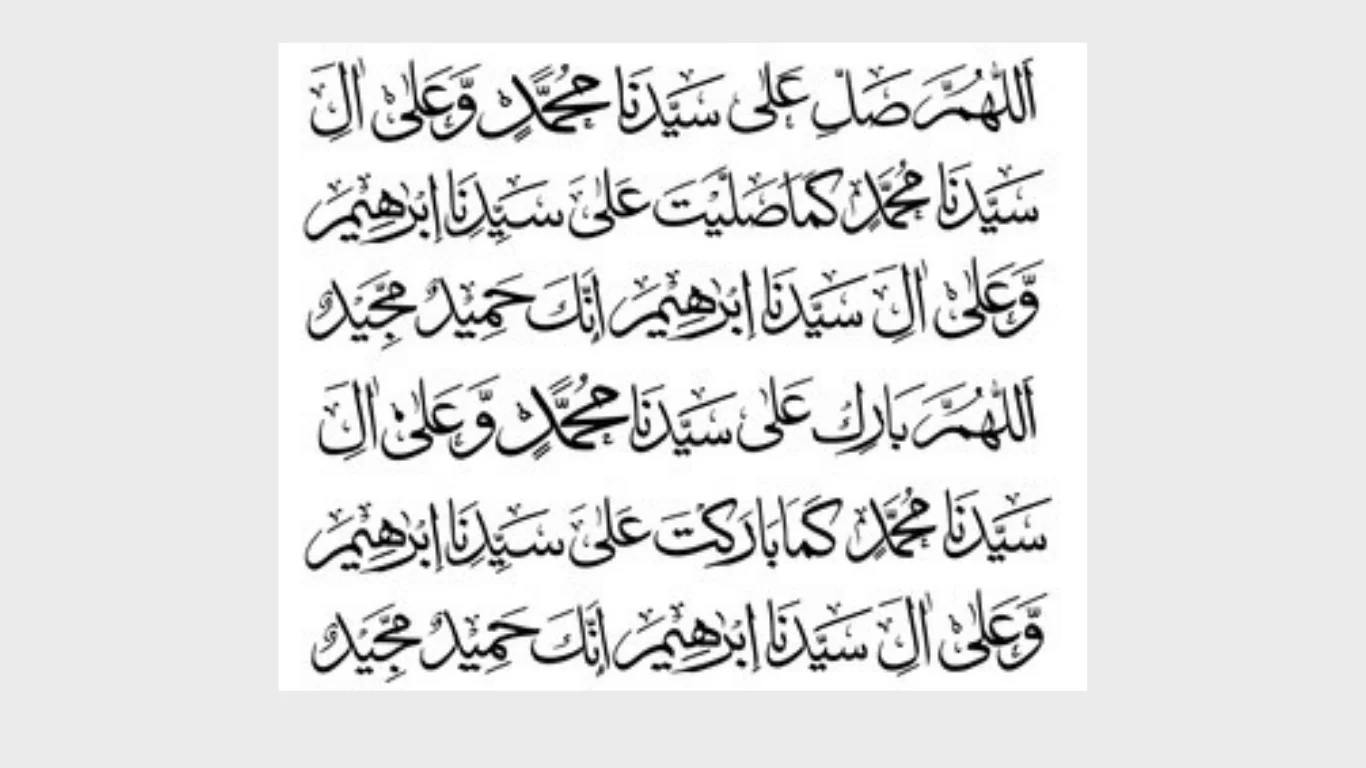 اَللّٰهُمَّ صَلِّ عَلٰى سَيِّدِنَا مُحَمَّدٍ وَّعَلٰىٓ اٰلِ
سَيِّدِنَا مُحَمَّدٍ كَمَا صَلَّيْتَ عَلٰى سَيِّدِنَا اِبْرٰهِيْمَ
وَعَلٰىٓ اٰلِ سَيِّدِنَا اِبْرٰهِيْمَ اِنَّكَ حَمِيْدٌ مَّجِيْدٌ
اَللّٰهُمَّ بَارِكْ عَلٰى سَيِّدِنَا مُحَمَّدٍ وَّعَلٰىٓ اٰلِ
سَيِّدِنَا مُحَمَّدٍ كَمَا بَارَكْتَ عَلٰى سَيِّدِنَا اِبْرٰهِيْمَ
وَّعَلٰىٓ اٰلِ سَيِّدِنَا اِبْرٰهِيْمَ اِنَّكَ حَمِيْدٌ مَّجِيْدٌ